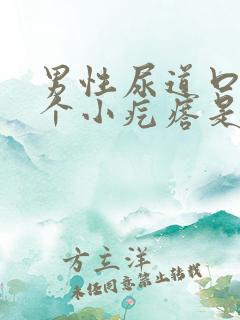 男性尿道口
个小疙瘩是
方立洋
未经同意禁止转载